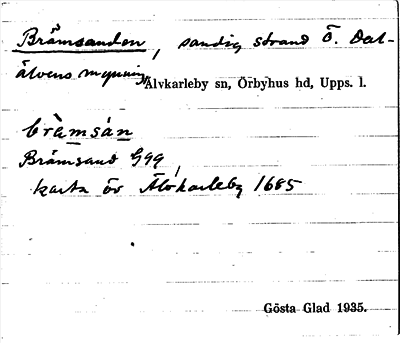 Brämsanden, sandig strand ö. Dal-
älvens mynning, Älvkarleby sn, Örbyhus hd, Upps. l.
brä̀msán
Brämsand Gqq,
karta öv Älvkarleby 1685
Gösta Glad 1935.